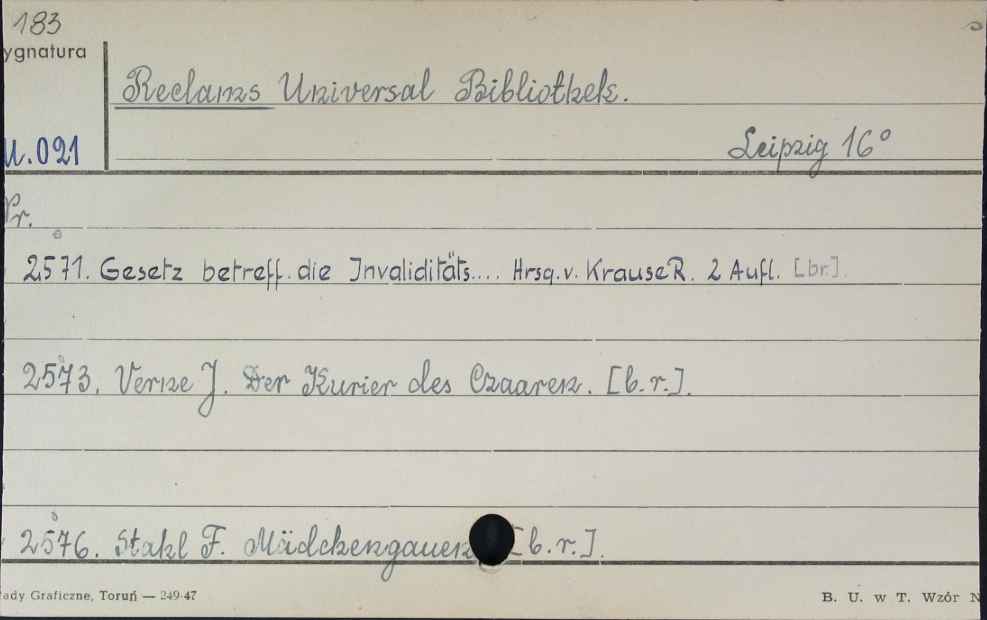 183
ygnatura
Reclams Universal Bibliothek.
U.021
Leipzig 16°
Nr.
2571. Gesetz betreff. die Invaliditäts.... Hrsg. v. Krause R. 2 Aufl. [br].
2573. Verne J. Der Kurier des Czaaren. [b.r.].
2576. Stahl F. Mädchengauen [b.r.].
ady Graficzne, Toruń — 249-47
B. U. w T. Wzór N